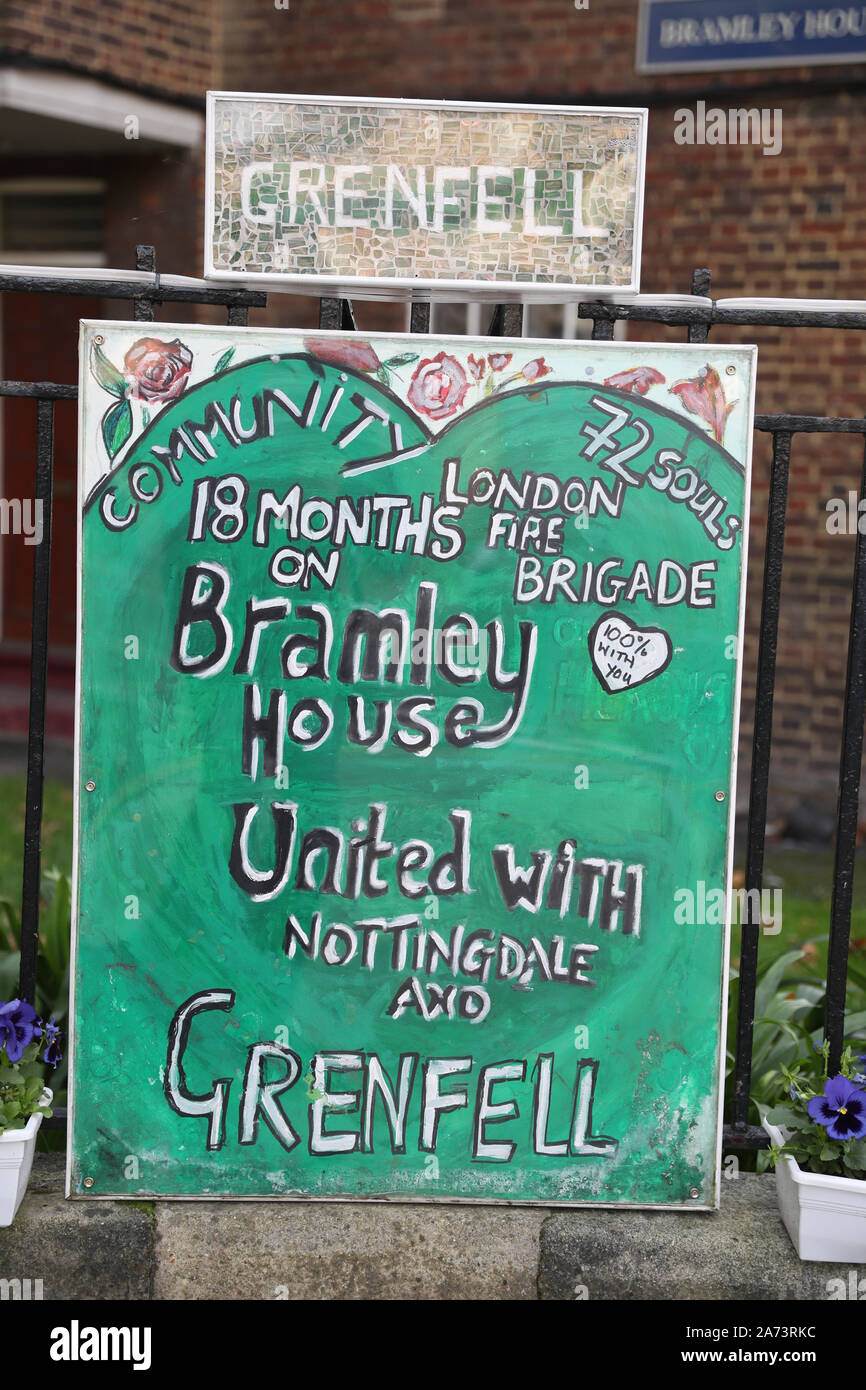 BRAMLEY HOU
GRENFELL
COMMUNITY
72 SOULS
18 MONTHS
ON
LONDON
FIRE
BRIGADE
Bramley
House
100%
WITH
YOU
United with
NOTTINGDALE
AND
GRENFELL
a
alamy
Image ID: 2A73RKC
www.alamy.com